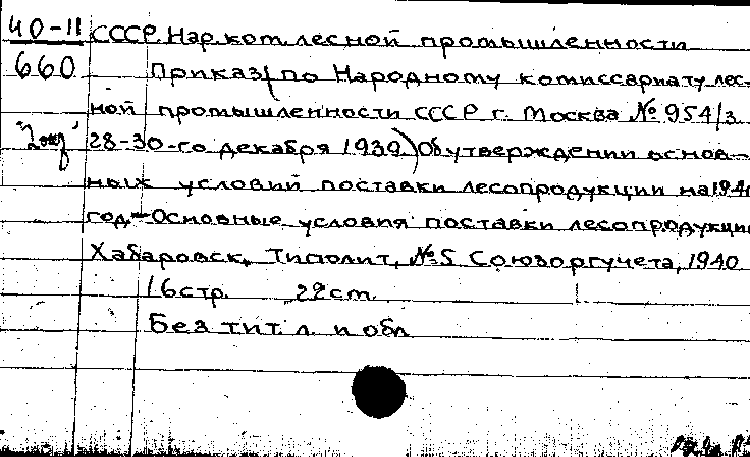 40-11 СССР. Нар. ком. лесной промышленности
660 Приказ (по Народному комиссариату лес-
ной промышленности СССР г. Москва № 954/з
"2 экз" 28-30-го декабря 1939) Об утверждении основ-
ных условий поставки лесопродукции на 1940
год — Основные условия поставки лесопродукции
Хабаровск, Типолит. №5 Союзоргучета, 1940
16 стр. 22 ст.
Без тит. л. и обл